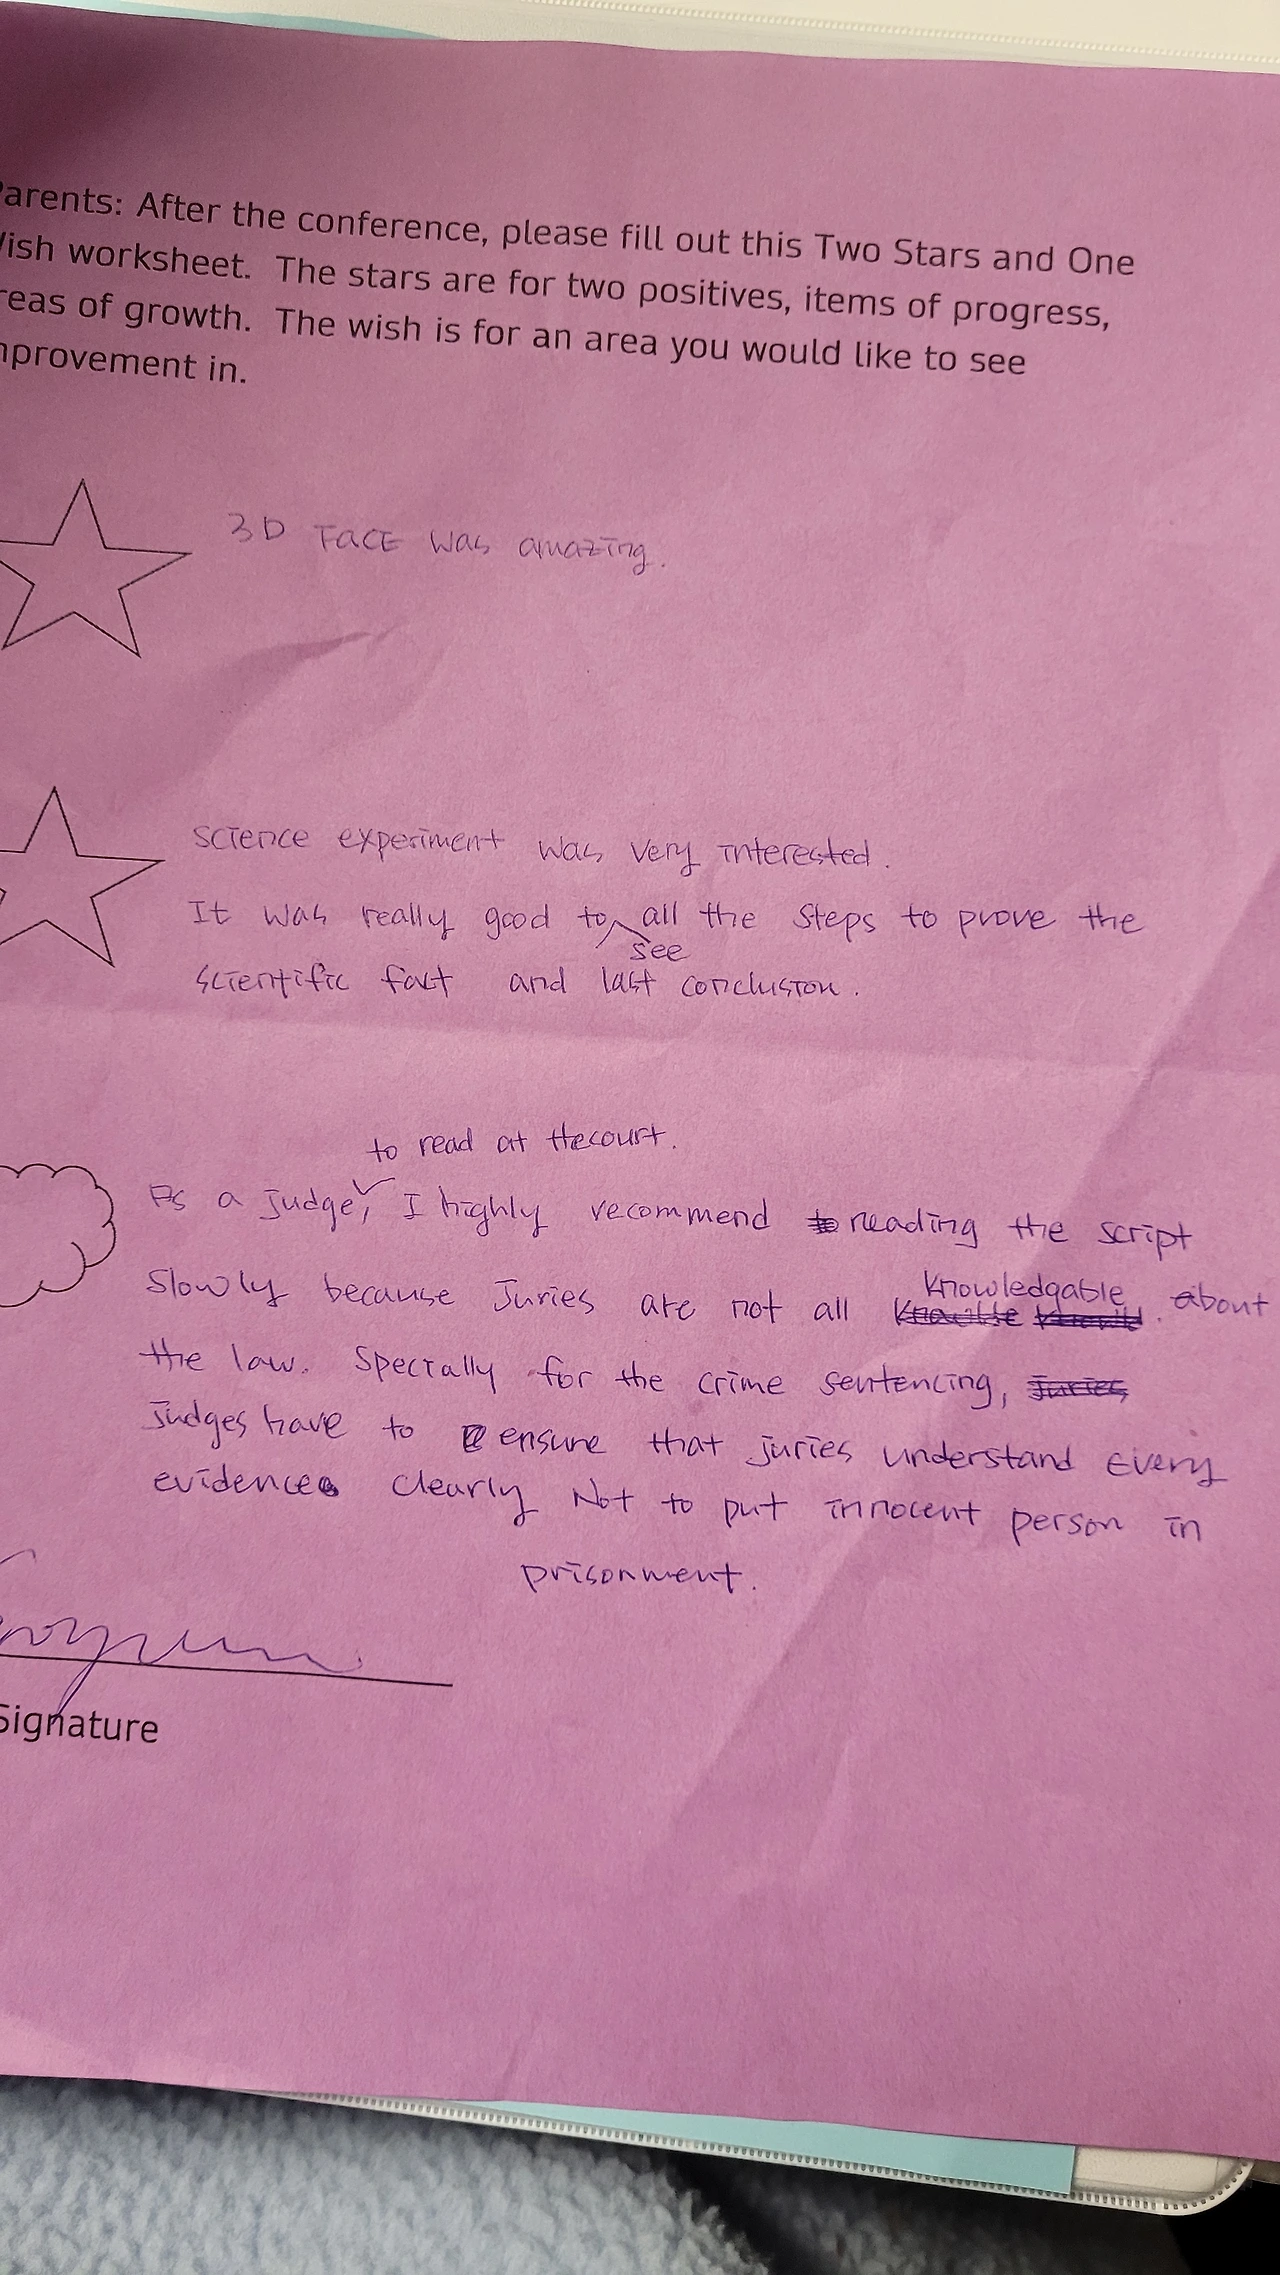 arents: After the conference, please fill out this Two Stars and One
ish worksheet. The stars are for two positives, items of progress,
reas of growth. The wish is for an area you would like to see
provement in.
3D FACE was amazing.
Science experiment was very interested.
It was really good to see all the steps to prove the
scientific fact and last conclusion.
to read at the court.
As a judge, I highly recommend reading the script
slowly because Juries are not all knowledgable about
the law. Specially for the crime sentencing, Juries
Judges have to ensure that juries understand every
evidence clearly Not to put innocent person in
prisonment.
Signature